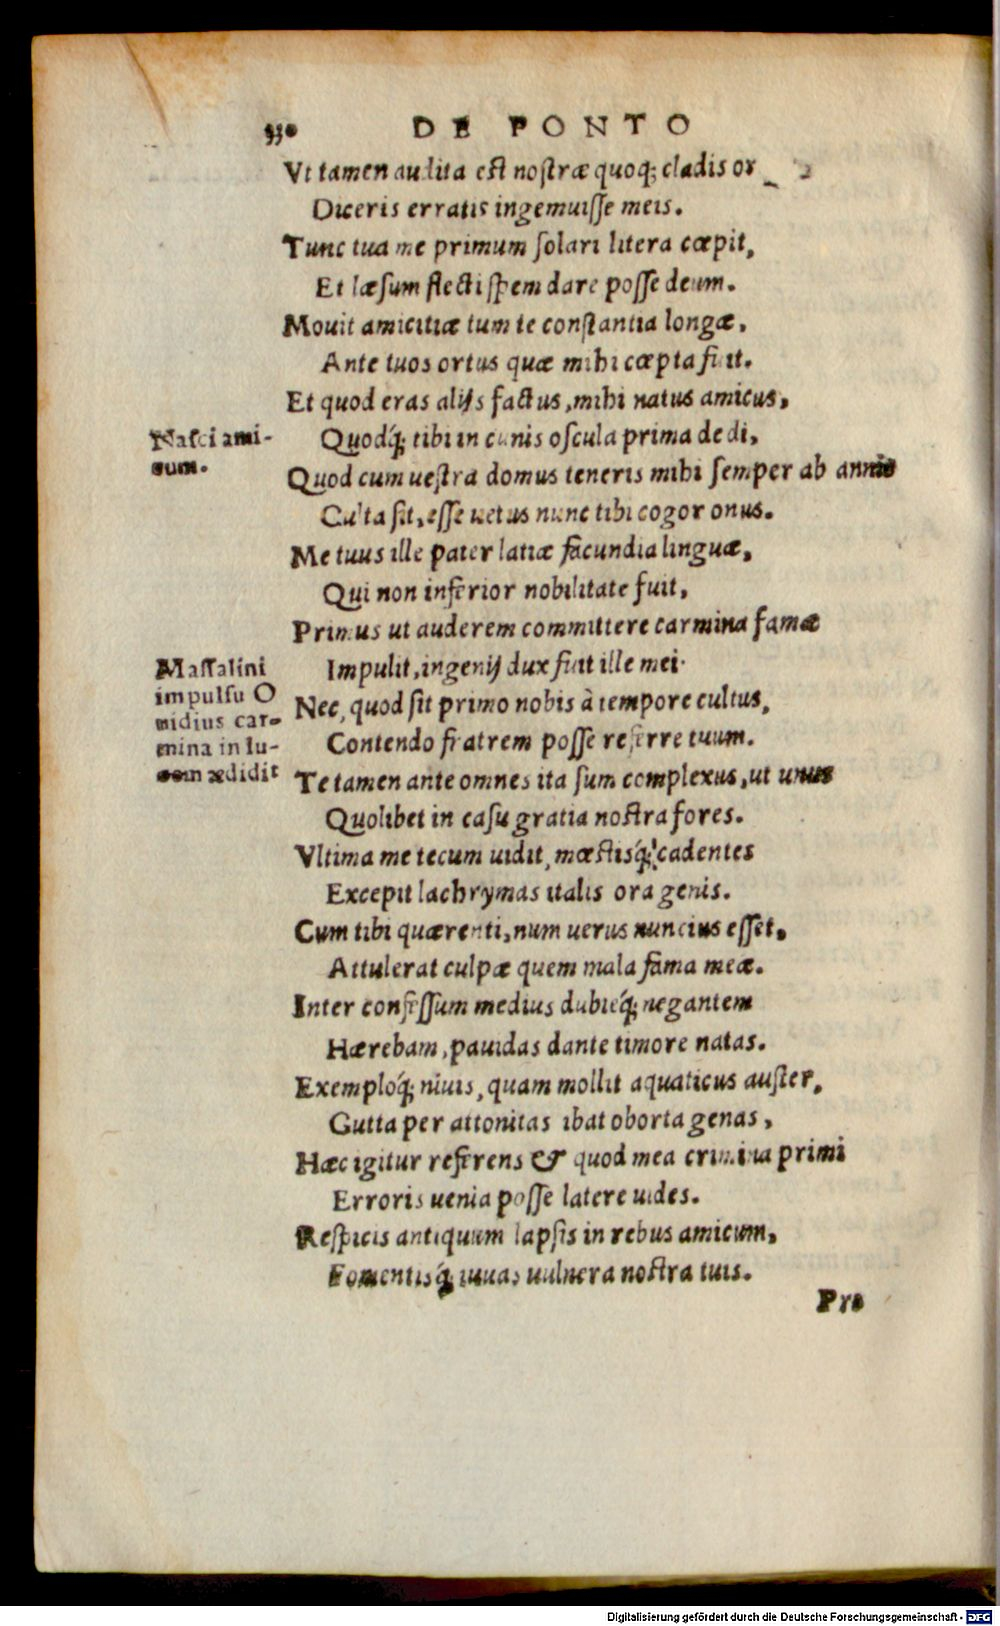 330 DE PONTO
Vt tamen audita est nostræ quoq; cladis or
Diceris erratis ingemuisse meis.
Tunc tua me primum solari litera cœpit,
Et læsum flecti spem dare posse deum.
Mouit amicitiæ tum te constantia longæ,
Ante tuos ortus quæ mihi cœpta fuit.
Et quod eras alijs factus, mihi natus amicus,
Nasci ami-
cum.
Quodq́; tibi in cunis oscula prima dedi,
Quod cum uestra domus teneris mihi semper ab annis
Culta sit, esse uetus nunc tibi cogor onus.
Me tuus ille pater latiæ facundia linguæ,
Qui non inferior nobilitate fuit,
Primus ut auderem committere carmina famæ
Massalini
impulsu O
uidius car-
mina in lu-
cem ædidit
Impulit, ingenij dux fuit ille mei.
Nec, quod sit primo nobis à tempore cultus,
Contendo fratrem posse referre tuum.
Te tamen ante omnes ita sum complexus, ut unus
Quolibet in casu gratia nostra fores.
Vltima me tecum uidit, mœstisq́; cadentes
Excepit lachrymas italis ora genis.
Cum tibi quærenti, num uerus nuncius esset,
Attulerat culpæ quem mala fama meæ.
Inter confessum medius dubieq́; negantem
Hærebam, pauidas dante timore natas.
Exemploq́; niuis, quam mollit aquaticus auster,
Gutta per attonitas ibat oborta genas,
Hæc igitur referens & quod mea crimina primi
Erroris uenia posse latere uides.
Respicis antiquum lapsis in rebus amicum,
Fomentisq́; iuuas uulnera nostra tuis.
Pro
Digitalisierung gefördert durch die Deutsche Forschungsgemeinschaft - DFG